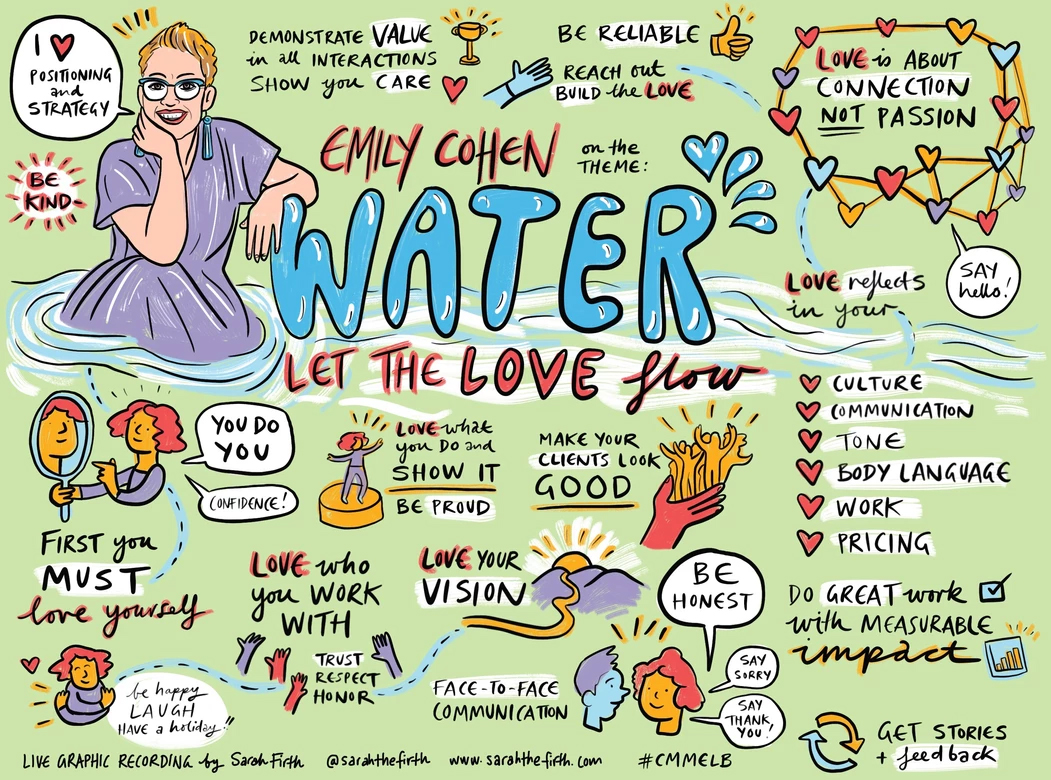 I
POSITIONING
and
STRATEGY
DEMONSTRATE VALUE
in all INTERACTIONS
SHOW you CARE
BE RELIABLE
REACH out
BUILD the LOVE
LOVE is ABOUT
CONNECTION
NOT PASSION
BE
KIND
EMILY COHEN
on the
THEME:
WATER
LET THE LOVE flow
SAY
hello!
LOVE reflects
in your
CULTURE
COMMUNICATION
TONE
BODY LANGUAGE
WORK
PRICING
YOU DO
YOU
CONFIDENCE!
FIRST you
MUST
love yourself
LOVE what
you DO and
SHOW IT
BE PROUD
MAKE YOUR
CLIENTS LOOK
GOOD
LOVE who
you WORK
WITH
TRUST
RESPECT
HONOR
LOVE YOUR
VISION
BE
HONEST
DO GREAT work
with MEASURABLE
impact
be happy
LAUGH
HAVE a holiday!!
FACE-TO-FACE
COMMUNICATION
SAY
SORRY
SAY
THANK
YOU!
GET STORIES
+ feedback
LIVE GRAPHIC RECORDING by Sarah Firth @sarahthefirth www.sarahthefirth.com #CMMELB